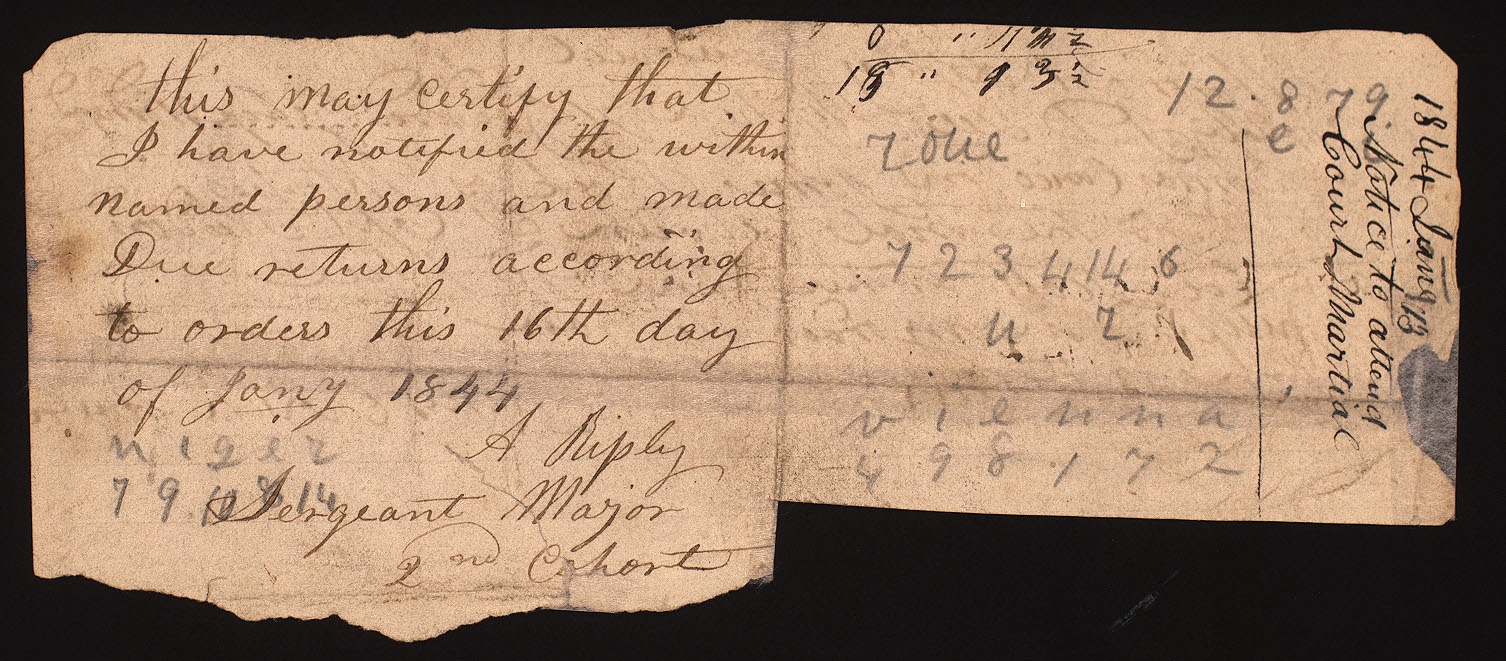 this may certify that
I have notified the within
named persons and made
Due returns according
to orders this 16th day
of Jany 1844
A Riply
Sergeant Major
2nd Cohort
n i g e r
7 9 11 8 14
12 . 8 7 9
e
7 2 3 4 14 6
n 2
v i e n n a
4 9 8 1 7 2
1844 Jany 13
Notice to attend
Court Martial